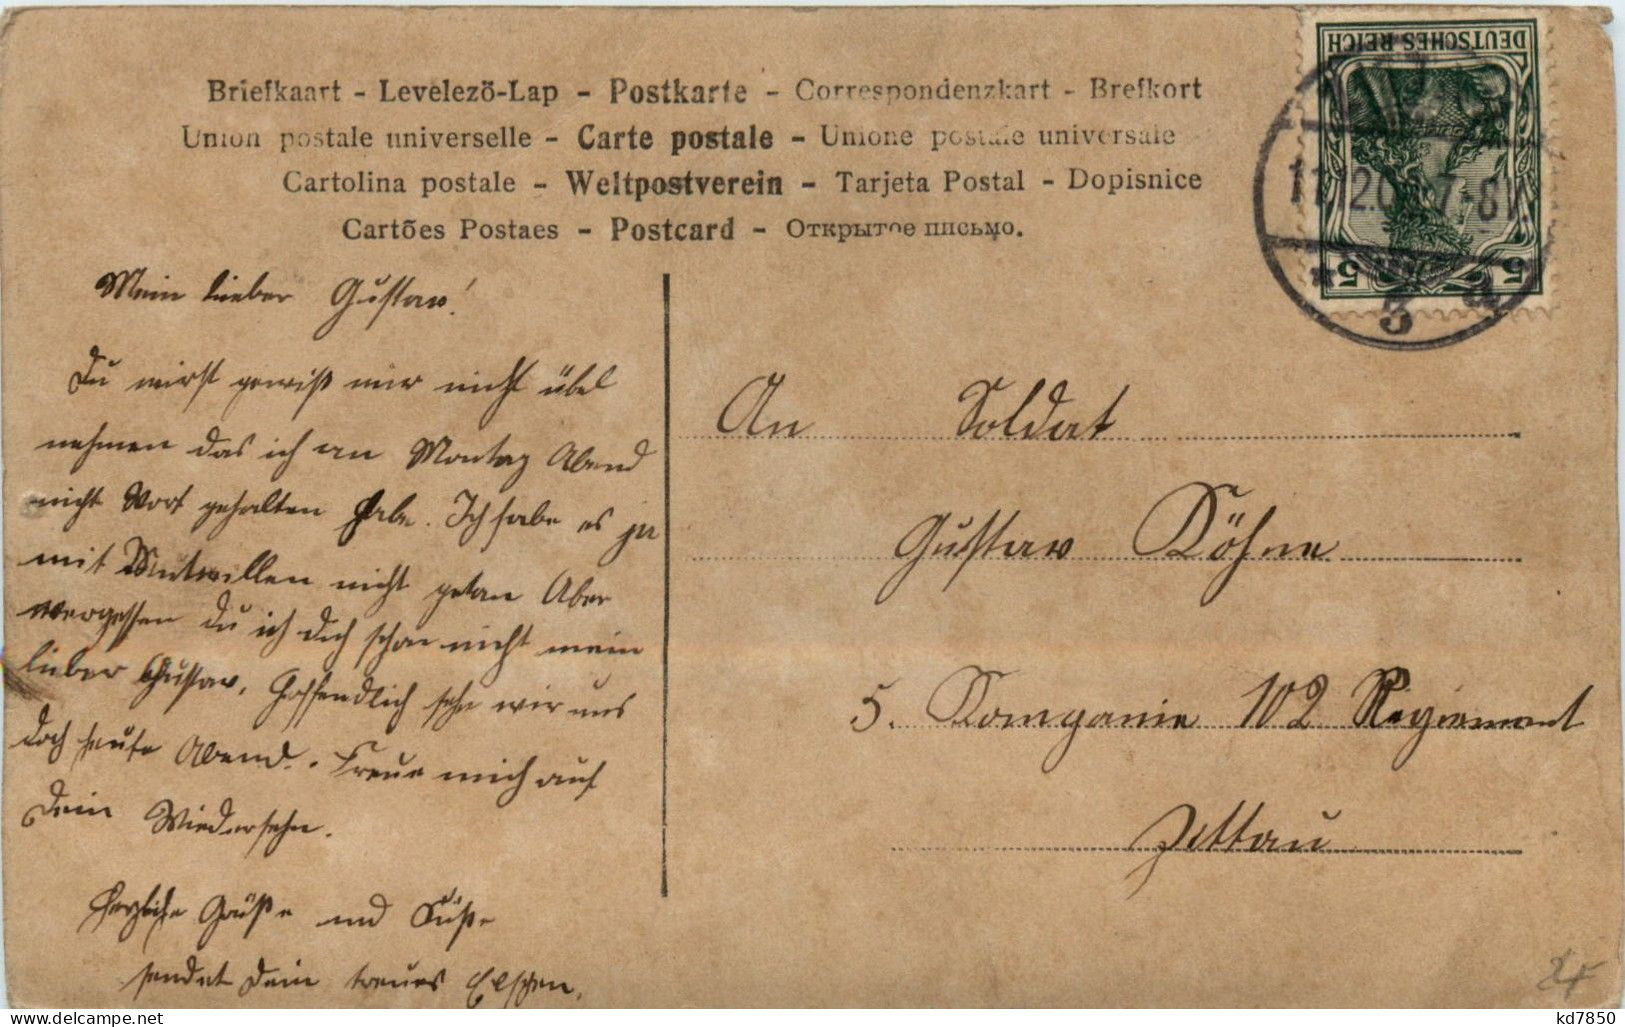 Briefkaart - Levelezö-Lap - Postkarte - Correspondenzkart - Brefkort
Union postale universelle - Carte postale - Unione postale universale
Cartolina postale - Weltpostverein - Tarjeta Postal - Dopisnice
Cartões Postaes - Postcard - Открытое письмо.
DEUTSCHES REICH
5 5
Mein lieber Gustav!
Du wirst gewiß mir nicht übel
nehmen das ich am Montag Abend
nicht Wort gehalten habe. Ich habe es ja
mit Mutwillen nicht getan Aber
vergessen du ich dich schon nicht mein
lieber Gustav, hoffendlich sehn wir uns
doch heute Abend. Freue mich auf
Dein Wiedersehn.
Herzliche Grüße und Küße
sendet Dein treues Elschen.
An Soldat
Gustav Köhne
5. Kompanie 102 Regiement
Zittau
kd7850